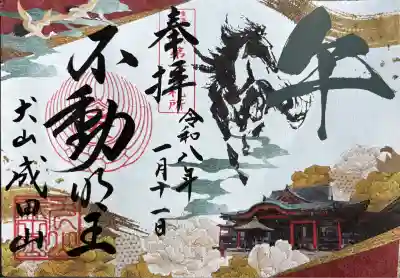 午
奉拝
令和八年
一月十一日
不動明王
犬山成田山